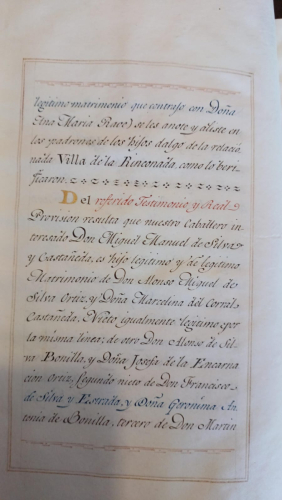 legitimo matrimonio que contrajo con Doña
Ana Maria Raco) se les anote y aliste en
los padrones de los hijos dalgo de la relacio
nada Villa de la Rinconada, como lo beri
ficaron.
Del referido Testimonio y Real
Provision resulta que nuestro Caballero in
teresado Don Miguel Manuel de Silva
y Castañeda, es hijo legitimo y de legitimo
Matrimonio de Don Alonso Miguel de
Silva Ortiz, y Doña Marcelina del Corral
Castañeda, Nieto igualmente legitimo por
la misma linea; de otro Don Alonso de Sil
va Bonilla, y Doña Josefa de la Encarna
cion Ortiz, Segundo nieto de Don Francisco
de Silva y Estrada, y Doña Geronima An
tonia de Bonilla, tercero de Don Martin